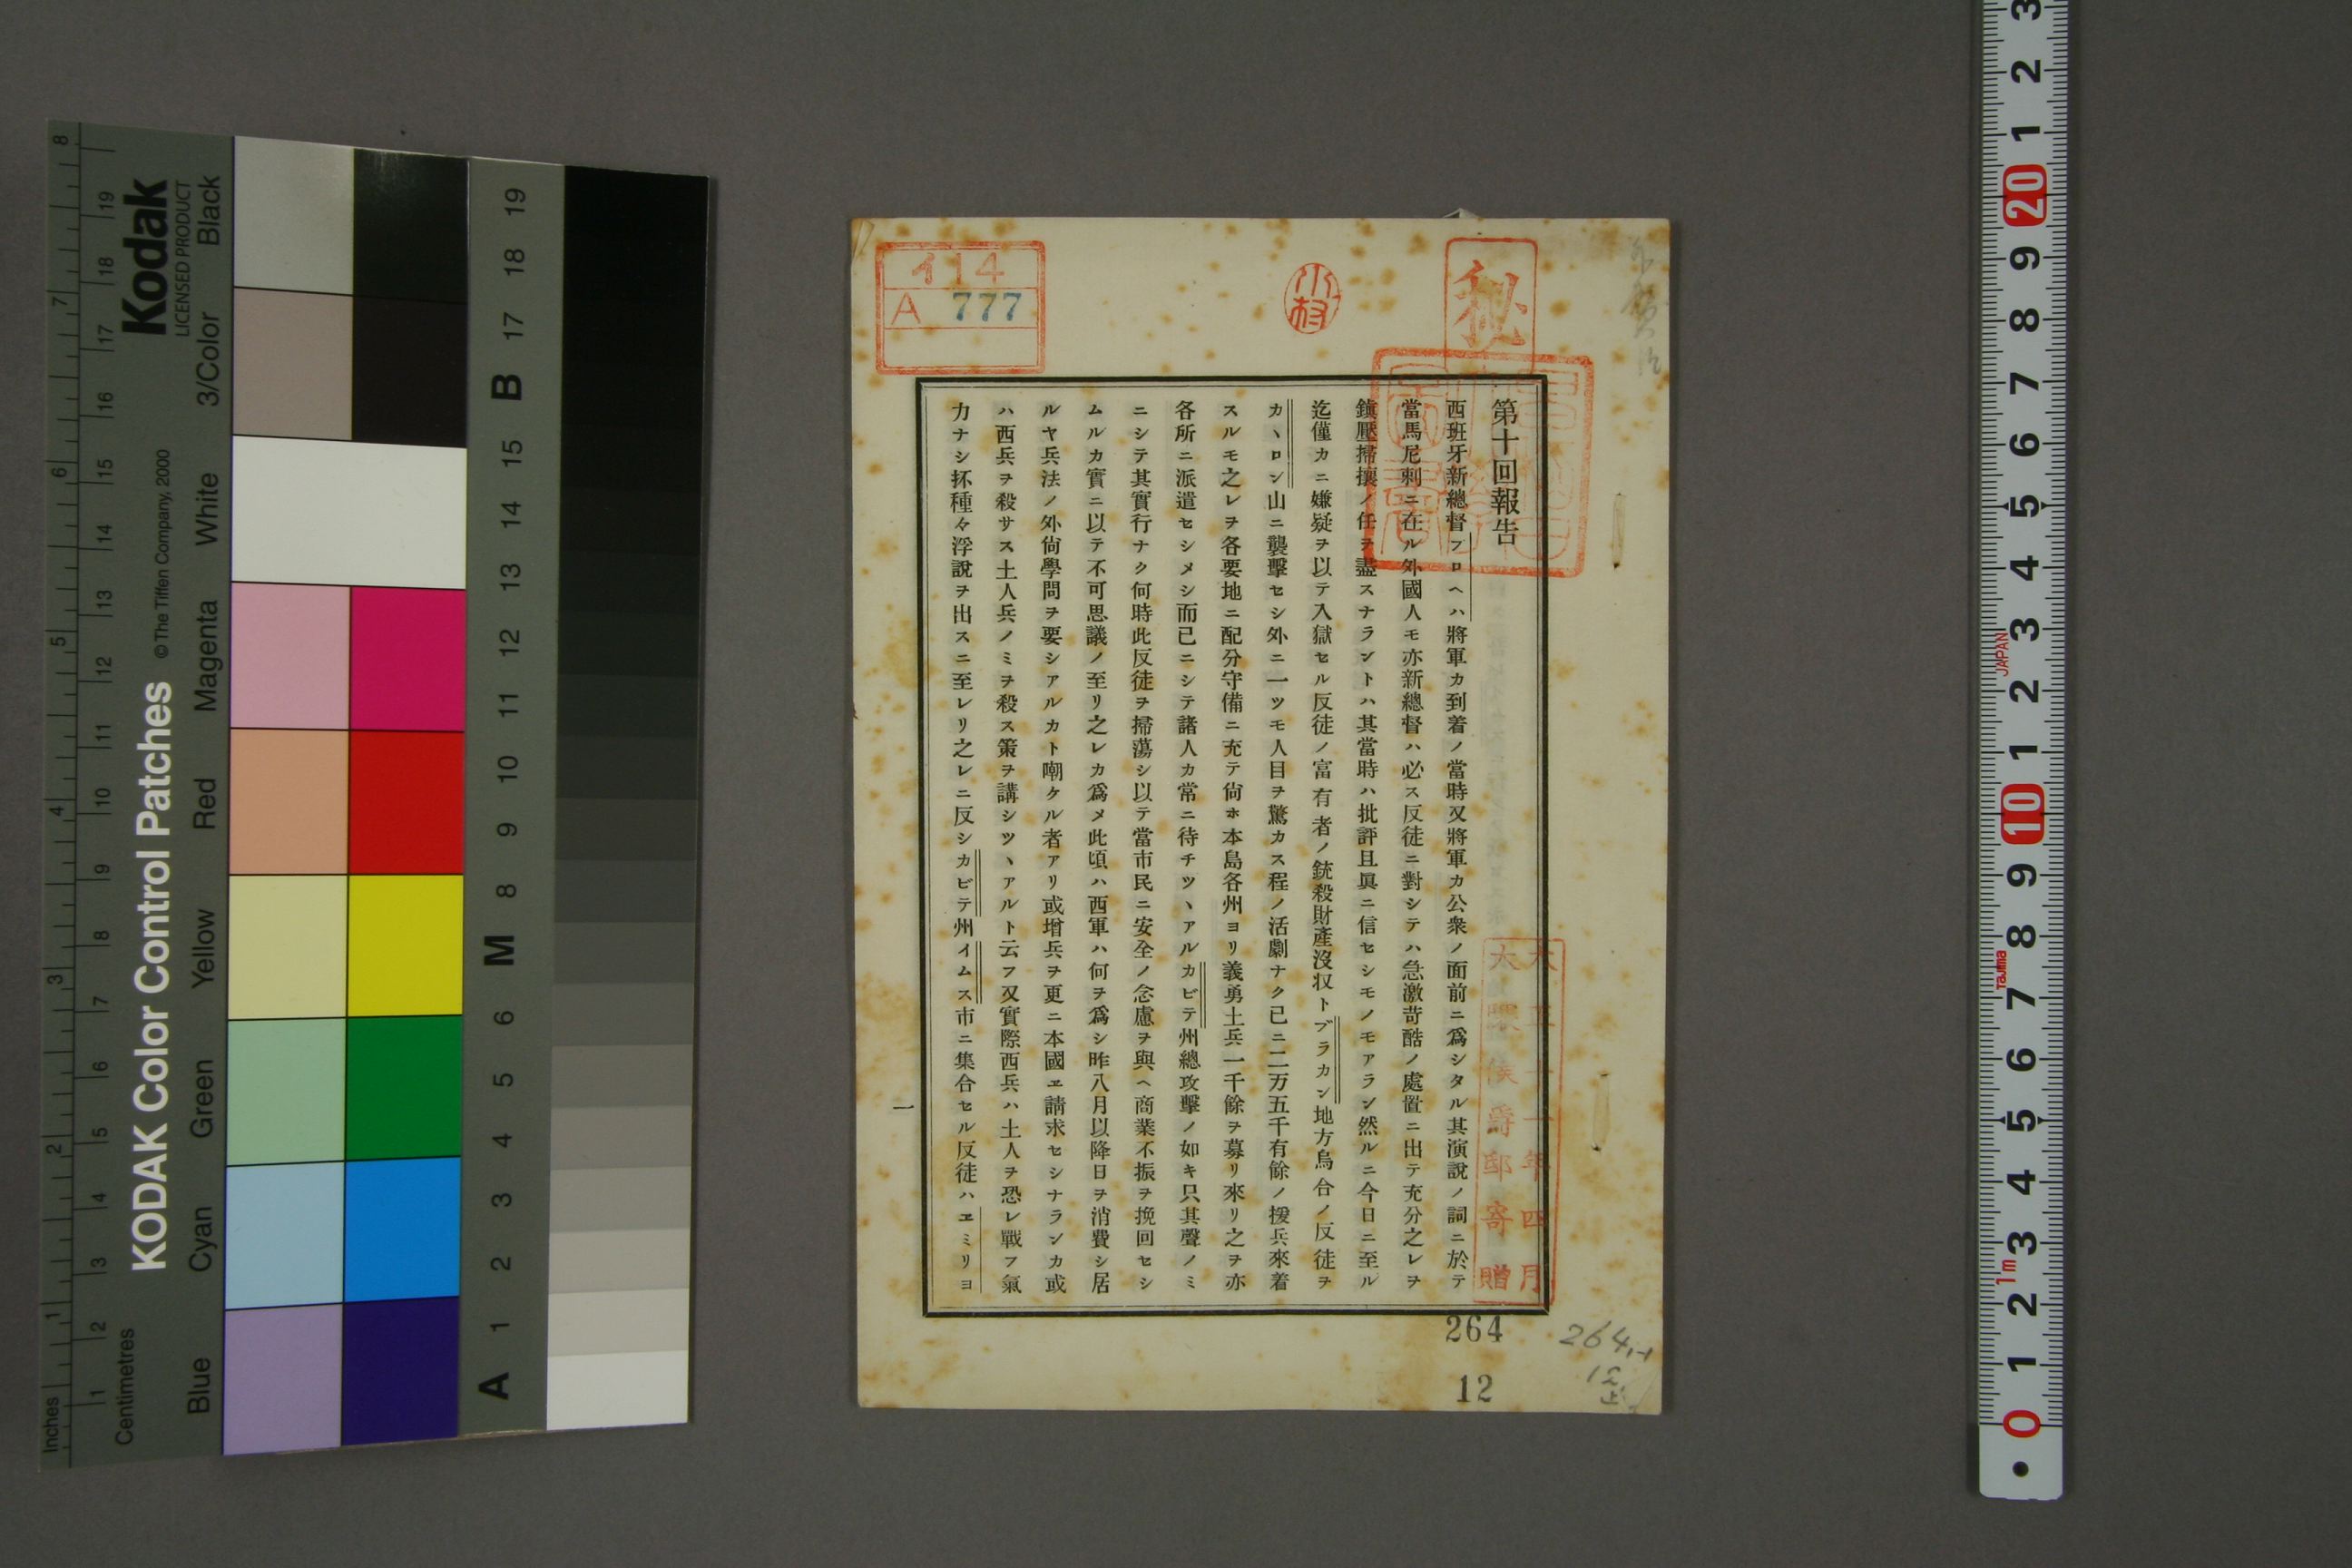 第十回報告
西班牙新總督フロヘハ將軍カ到着ノ當時又將軍カ公衆ノ面前ニ爲シタル其演說ノ詞ニ於テ
當馬尼剌ニ在ル外國人モ亦新總督ハ必ス反徒ニ對シテハ急激苛酷ノ處置ニ出テ充分之レヲ
鎭壓掃攘ノ任ヲ盡スナラントハ其當時ハ批評且眞ニ信セシモノモアラン然ルニ今日ニ至ル
迄僅カニ嫌疑ヲ以テ入獄セル反徒ノ富有者ノ銃殺財產沒收トブラカン地方烏合ノ反徒ヲ
カヽロン山ニ襲擊セシ外ニ一ツモ人目ヲ驚カス程ノ活劇ナク已ニ二万五千有餘ノ援兵來着
スルモ之レヲ各要地ニ配分守備ニ充テ尙ホ本島各州ヨリ義勇土兵一千餘ヲ募リ來リ之ヲ亦
各所ニ派遣セシメシ而已ニシテ諸人カ常ニ待チツヽアルカビテ州總攻擊ノ如キ只其聲ノミ
ニシテ其實行ナク何時此反徒ヲ掃蕩シ以テ當市民ニ安全ノ念慮ヲ與ヘ商業不振ヲ挽回セシ
ムルカ實ニ以テ不可思議ノ至リ之レカ爲メ此頃ハ西軍ハ何ヲ爲シ昨八月以降日ヲ消費シ居
ルヤ兵法ノ外尙學問ヲ要シアルカト嘲クル者アリ或增兵ヲ更ニ本國ヱ請求セシナランカ或
ハ西兵ヲ殺サス土人兵ノミヲ殺ス策ヲ講シツヽアルト云フ又實際西兵ハ土人ヲ恐レ戰フ氣
力ナシ抔種々浮說ヲ出スニ至レリ之レニ反シカビテ州イムス市ニ集合セル反徒ハヱミリヨ
一
秘
小村
イ14
A 777
大正十一年四月
大隈侯爵邸寄贈
264
12
264
12
KODAK Color Control Patches
© The Tiffen Company, 2000
Kodak
LICENSED PRODUCT
Inches
Centimetres
1 2 3 4 5 6 7 8
1 2 3 4 5 6 7 8 9 10 11 12 13 14 15 16 17 18 19
Blue Cyan Green Yellow Red Magenta White 3/Color Black
A 1 2 3 4 5 6 M 8 9 10 11 12 13 14 15 B 17 18 19
0 1 2 3 4 5 6 7 8 9 10 1 2 3 4 5 6 7 8 9 20 1 2 3
1m
Tajima
JAPAN